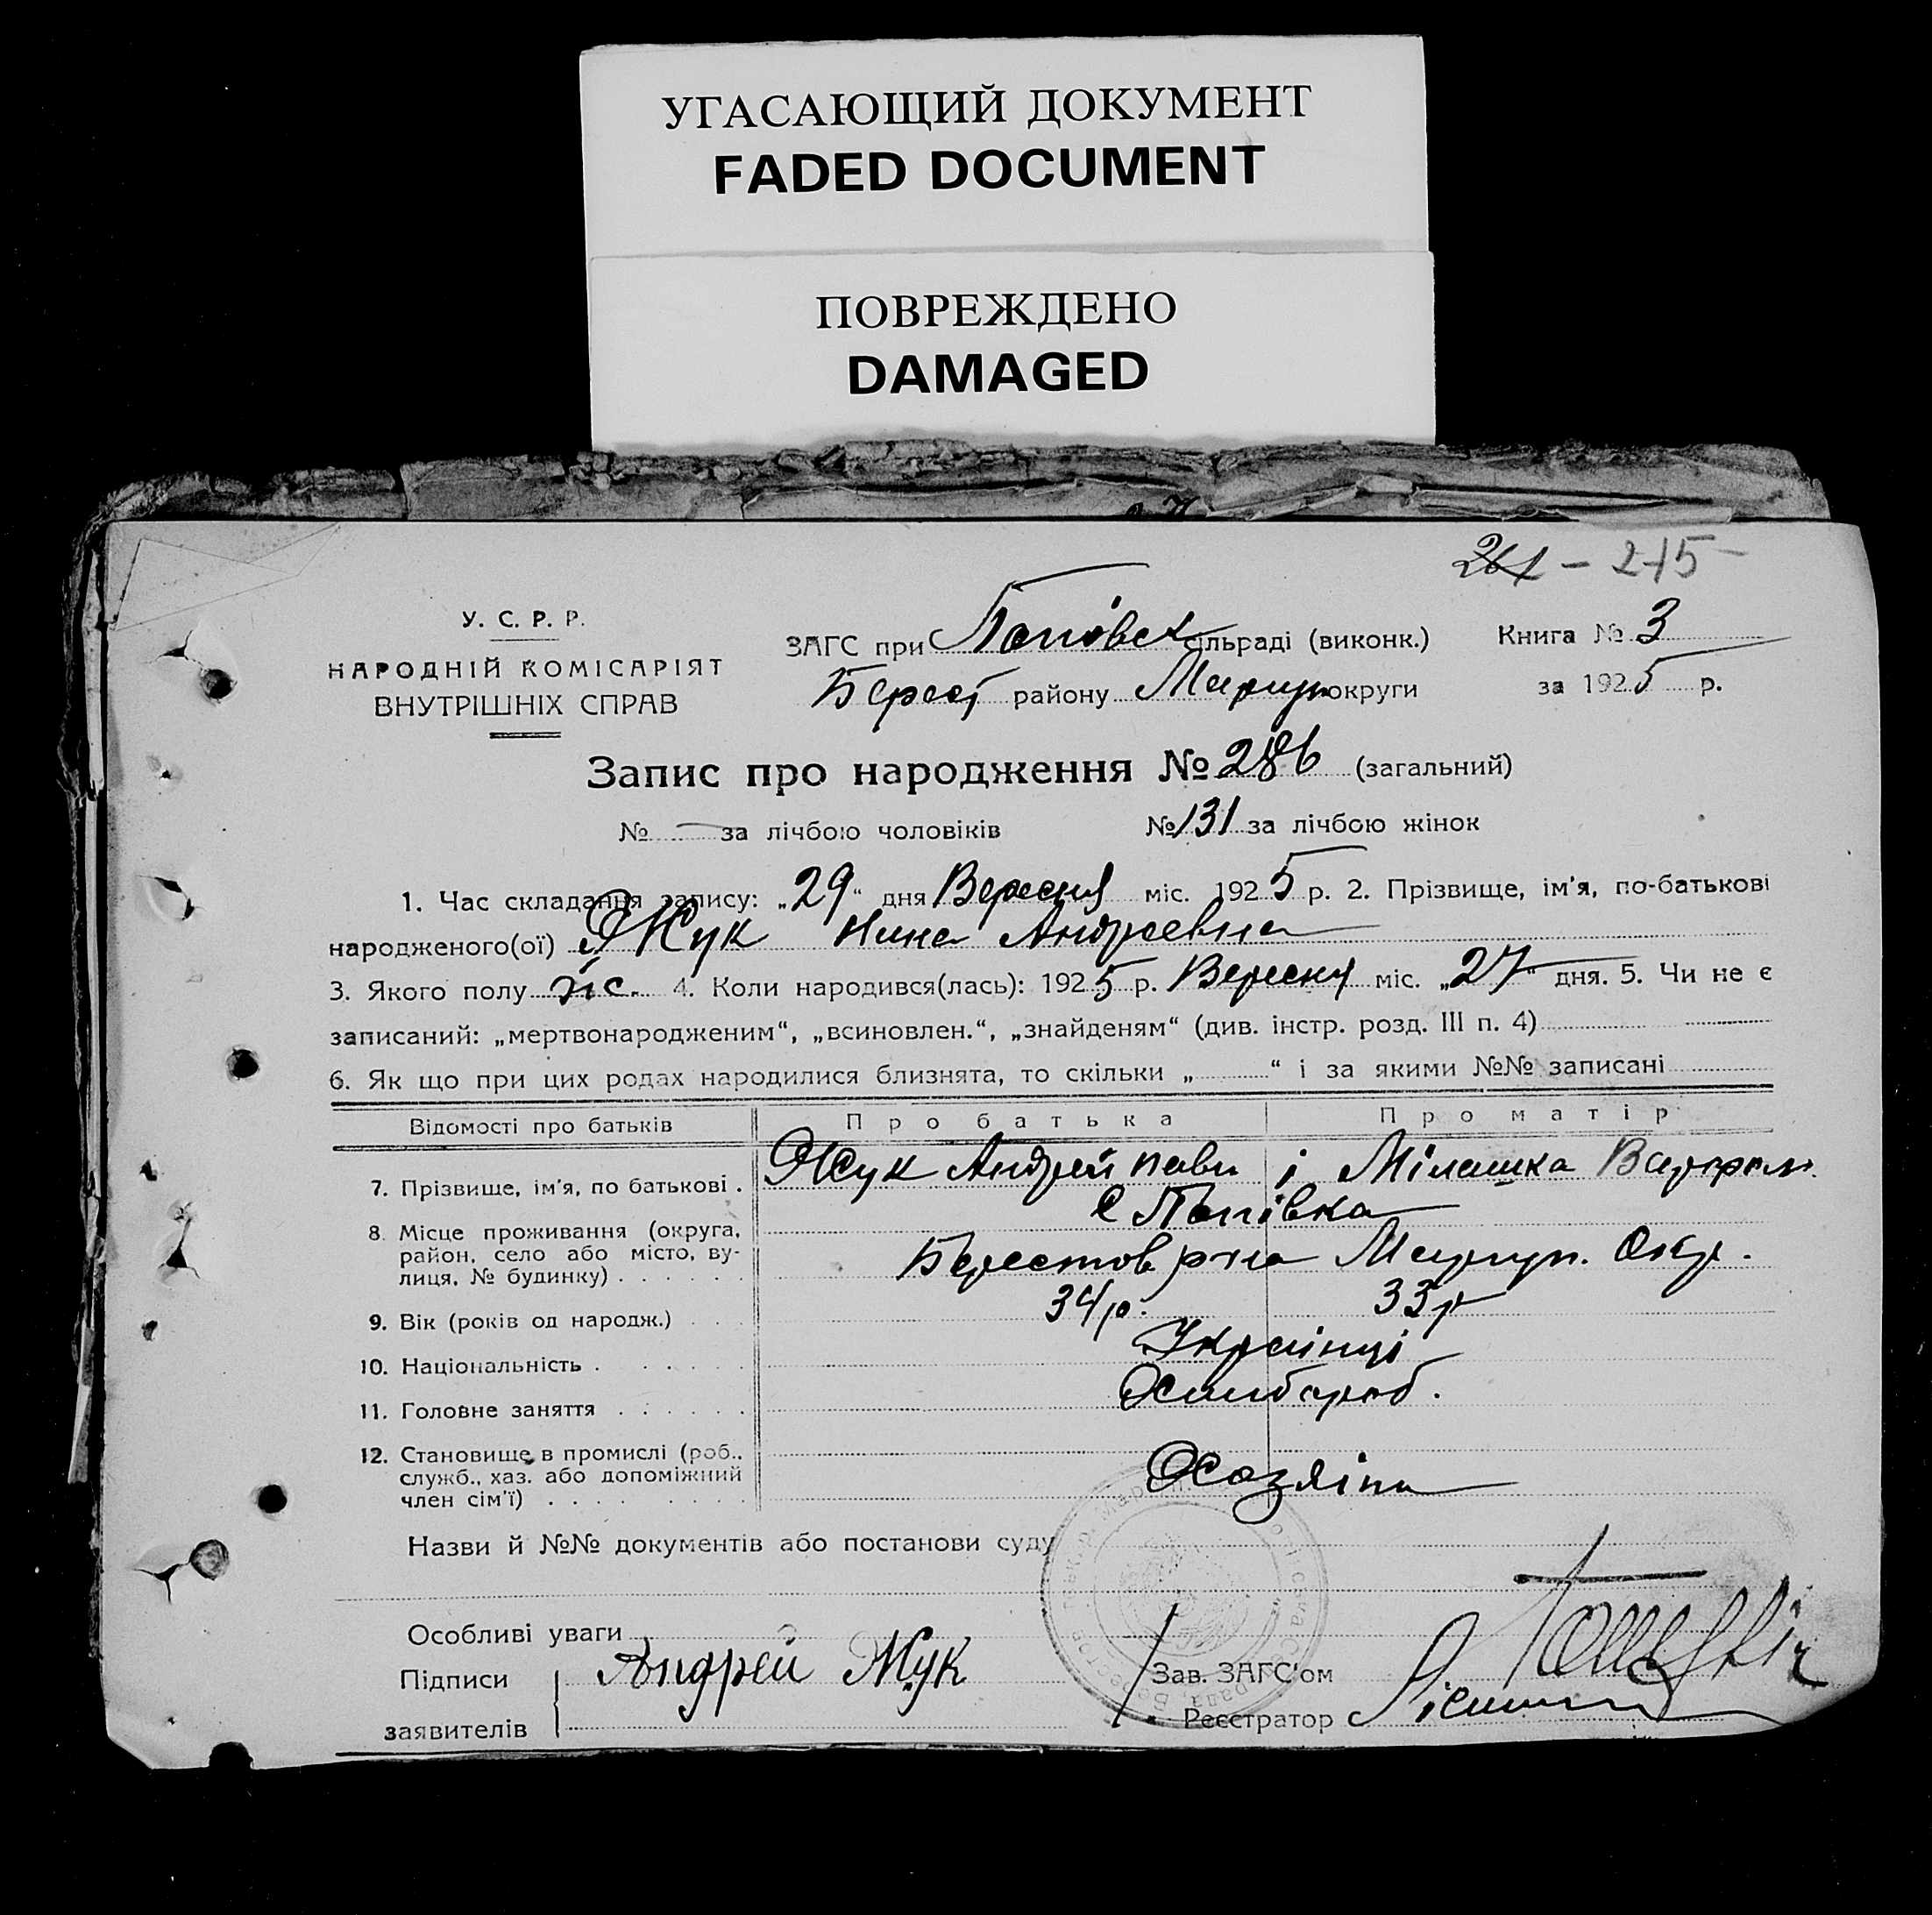 УГАСАЮЩИЙ ДОКУМЕНТ
FADED DOCUMENT
ПОВРЕЖДЕНО
DAMAGED
264 - 215
У. С. Р. Р.
НАРОДНІЙ КОМІСАРІЯТ
ВНУТРІШНІХ СПРАВ
ЗАГС при Попівск сільраді (виконк.)
Берест району Маріуп округи
Книга № 3
за 1925 р.
Запис про народження № 286 (загальний)
№ — за лічбою чоловіків № 131 за лічбою жінок
1. Час складання запису: „29“ дня Вересня міс. 1925 р. 2. Прізвище, ім'я, по-батькові
народженого(ої) Жук Нина Андреевна
3. Якого полу жіс. 4. Коли народився(лась): 1925 р. Вересня міс. „27“ дня. 5. Чи не є
записаний: „мертвонародженим“, „всиновлен.“, „знайденям“ (див. інстр. розд. III п. 4)
6. Як що при цих родах народилися близнята, то скільки „ “ і за якими №№ записані
Відомості про батьків Про батька Про матір
7. Прізвище, ім'я, по батькові . Жук Андрей Павл і Мілашка Варфол.
8. Місце проживання (округа, район, село або місто, вулиця, № будинку) . . . . . .
с Попівка
Берестов р-на Маріуп. Окр.
9. Вік (років од народж.) . . . 34 р. 33 р
10. Національність . . . . . . Українці
11. Головне заняття . . . . . . Хлібороб.
12. Становище в промислі (роб., служб., хаз. або допоміжний член сім'ї) . . . . . . . .
Хазяіни
Назви й №№ документів або постанови суду
Особливі уваги
Підписи
заявителів
Андрей Жук
Зав. ЗАГС'ом
Реєстратор